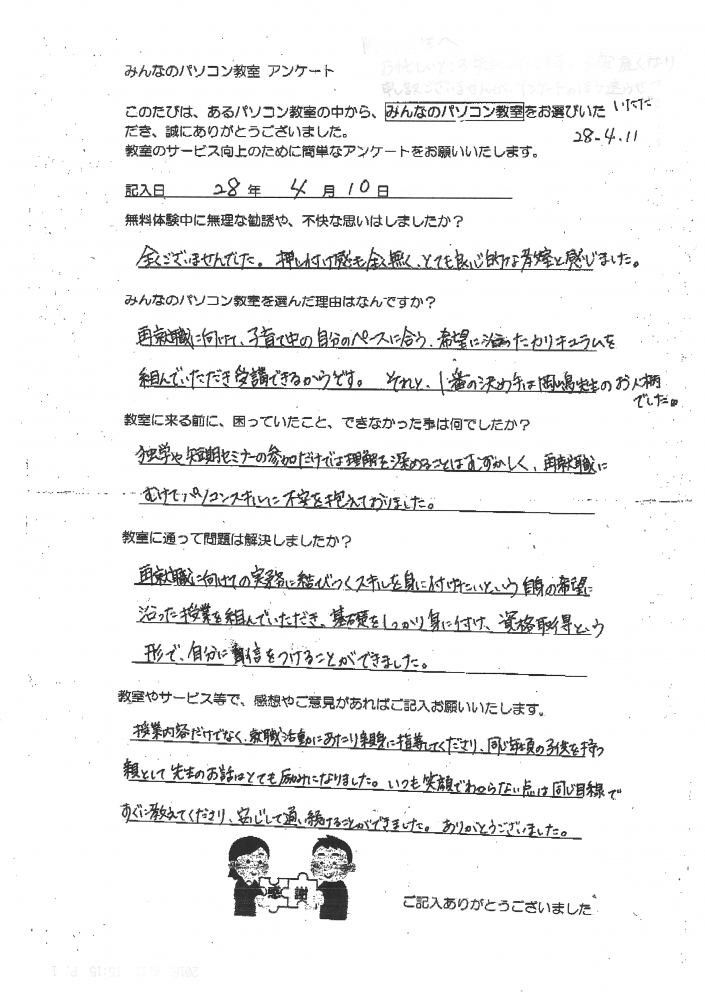 みんなのパソコン教室 アンケート
このたびは、あるパソコン教室の中から、みんなのパソコン教室をお選びいた いただ
だき、誠にありがとうございました。
28-4.11
教室のサービス向上のために簡単なアンケートをお願いいたします。
記入日 28 年 4 月 10 日
無料体験中に無理な勧誘や、不快な思いはしましたか？
全くございませんでした。押し付け感も全く無く、とても良心的な教室と感じました。
みんなのパソコン教室を選んだ理由はなんですか？
再就職に向けて、子育て中の自分のペースに合う、希望に沿ったカリキュラムを
組んでいただき受講できるからです。 それと、1番の決め手は岡嶋先生のお人柄
でした。
教室に来る前に、困っていたこと、できなかった事は何でしたか？
独学や短期セミナーの参加だけでは理解を深めることはむずかしく、再就職に
むけてパソコンスキルに不安を抱えておりました。
教室に通って問題は解決しましたか？
再就職に向けての実務に結びつくスキルを身に付けたいという自身の希望に
沿った授業を組んでいただき、基礎をしっかり身に付け、資格取得という
形で、自分に自信をつけることができました。
教室やサービス等で、感想やご意見があればご記入お願いいたします。
授業内容だけでなく、就職活動にあたり親身に指導してくださり、同じ年頃の子供を持つ
親として先生のお話はとても励みになりました。いつも笑顔でわからない点は同じ目線で
すぐに教えてくださり、安心して通い続けることができました。ありがとうございました。
感謝
ご記入ありがとうございました